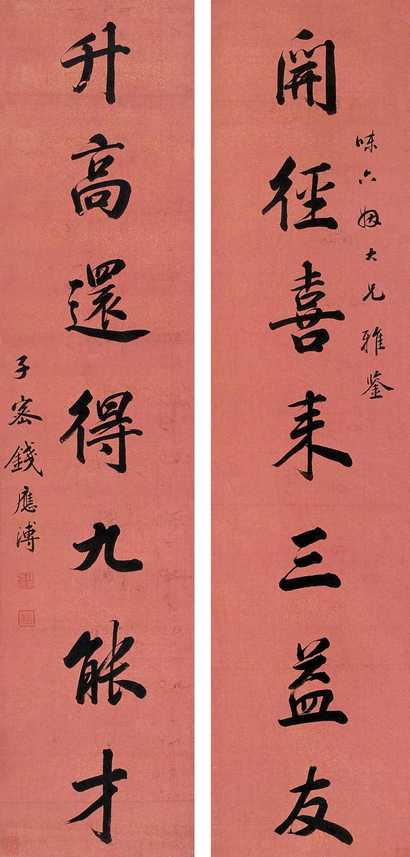 味六姻大兄雅鉴
開徑喜来三益友
升高還得九能才
子密錢應溥